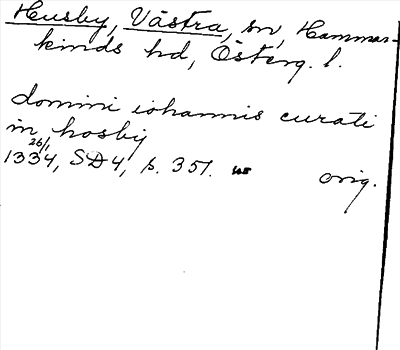 Husby, Västra, sn, Hammar-
kinds hd, Österg. l.
domini iohannis curati
in hosby
26/1
1334, SD4, s. 351. orig.